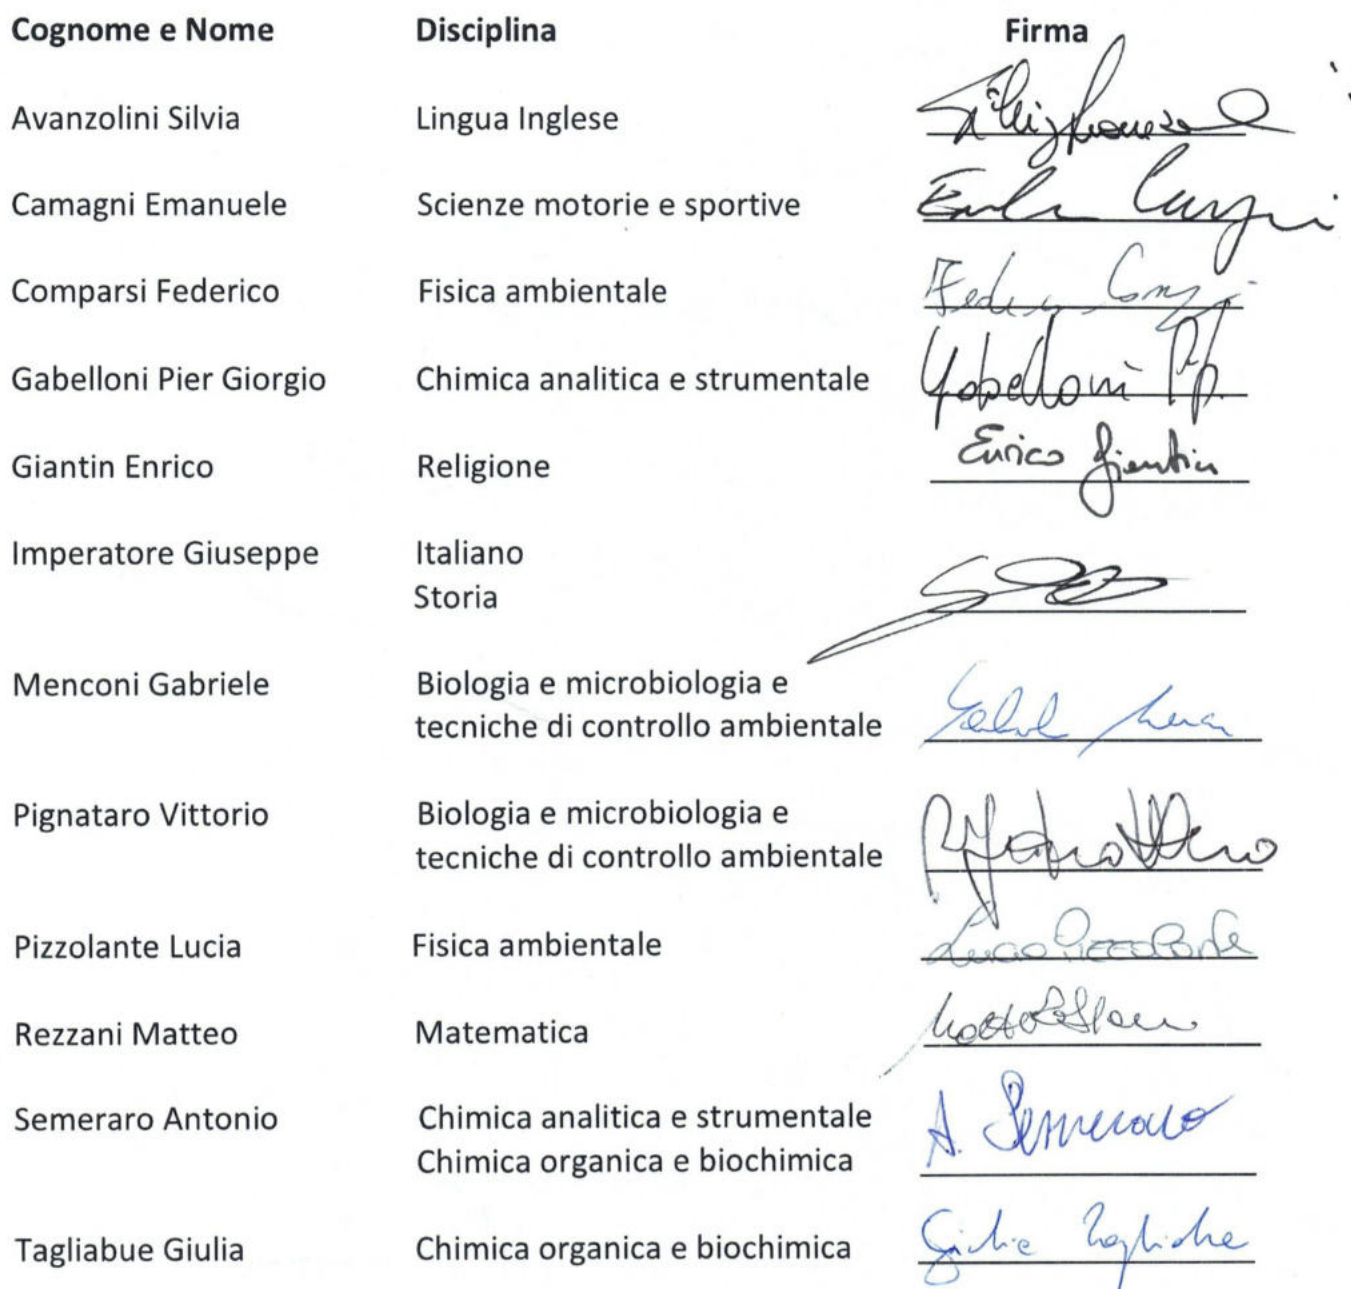 Cognome e Nome Disciplina Firma
Avanzolini Silvia Lingua Inglese
Camagni Emanuele Scienze motorie e sportive
Comparsi Federico Fisica ambientale
Gabelloni Pier Giorgio Chimica analitica e strumentale Gabelloni P.
Giantin Enrico Religione Enrico Giantin
Imperatore Giuseppe Italiano
Storia
Menconi Gabriele Biologia e microbiologia e
tecniche di controllo ambientale
Pignataro Vittorio Biologia e microbiologia e
tecniche di controllo ambientale
Pizzolante Lucia Fisica ambientale Lucia Pizzolante
Rezzani Matteo Matematica
Semeraro Antonio Chimica analitica e strumentale A. Semeraro
Chimica organica e biochimica
Tagliabue Giulia Chimica organica e biochimica Giulia Tagliabue